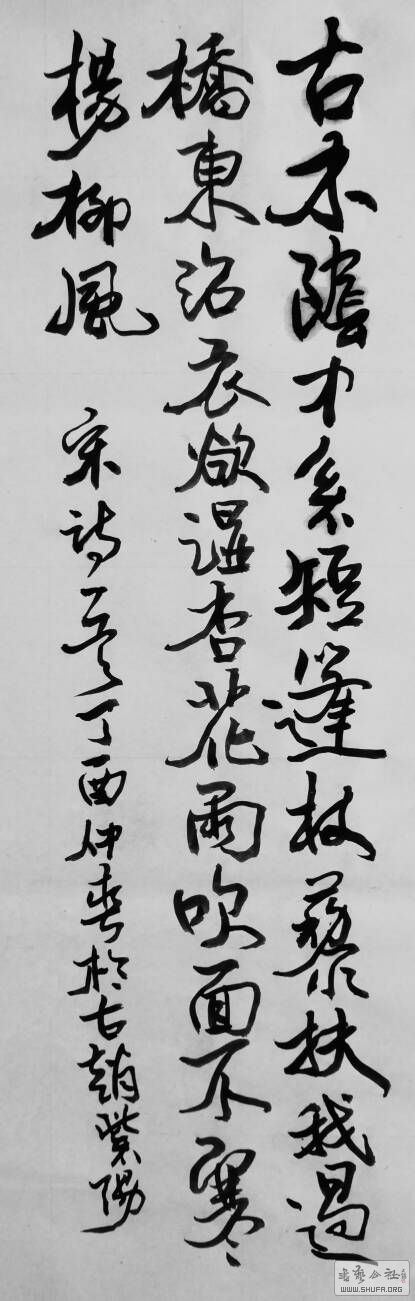 古木陰中系短篷杖藜扶我過
橋東沾衣欲濕杏花雨吹面不寒
楊柳風
宋詩一首丁酉仲春於古趙紫陽
書藝公社
WWW.SHUFA.ORG